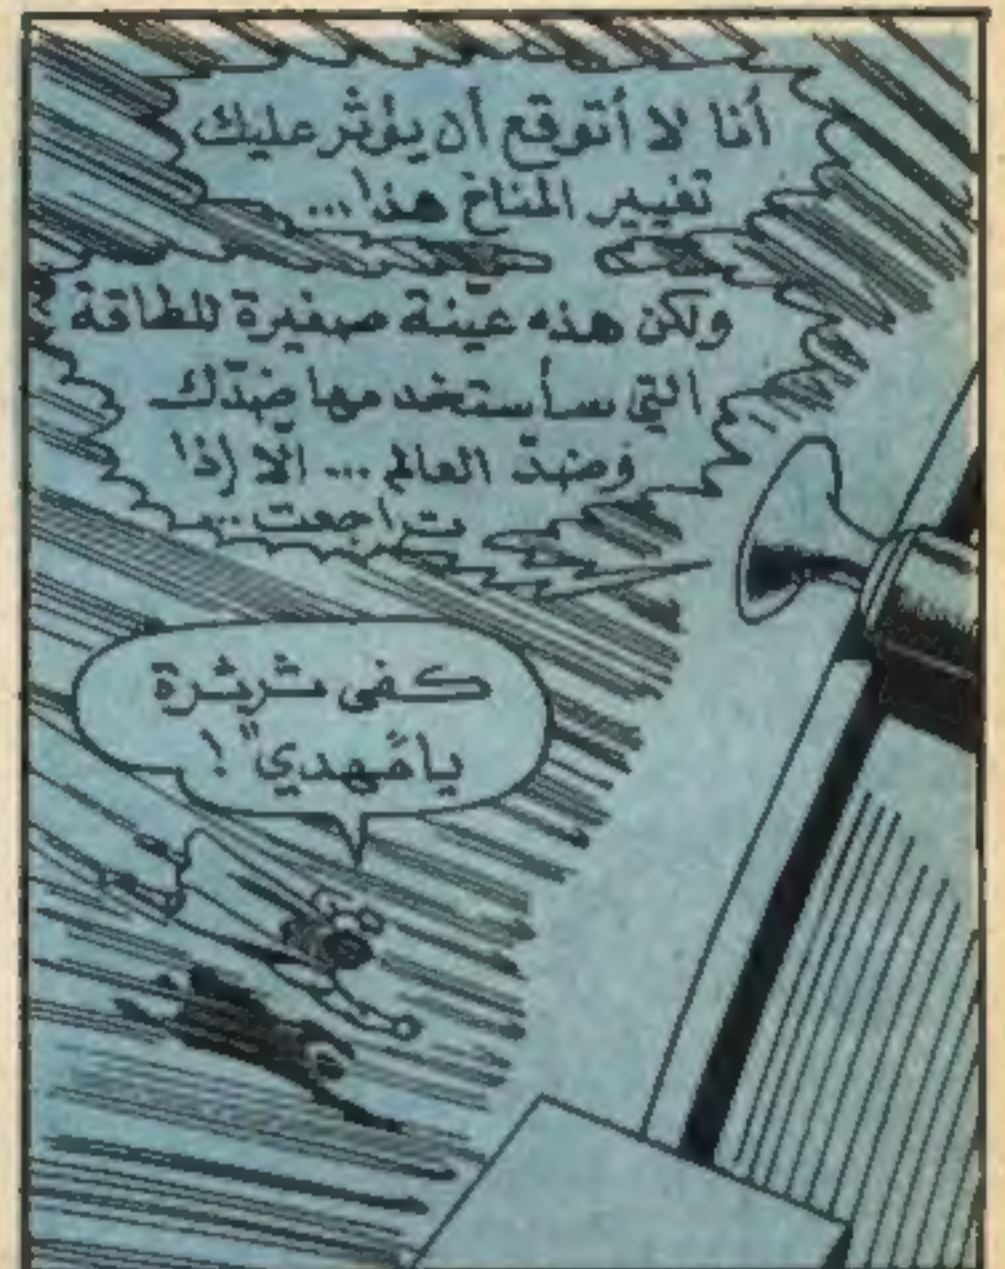 أنا لا أتوقع أن يؤثر عليك
تغيير المناخ هذا...
ولكن هذه عينة صغيرة للطاقة
التي سأستخدمها ضدّك
وضدّ العالم ... الّا إذا
تراجعت ..
كفى ثرثرة
يا !